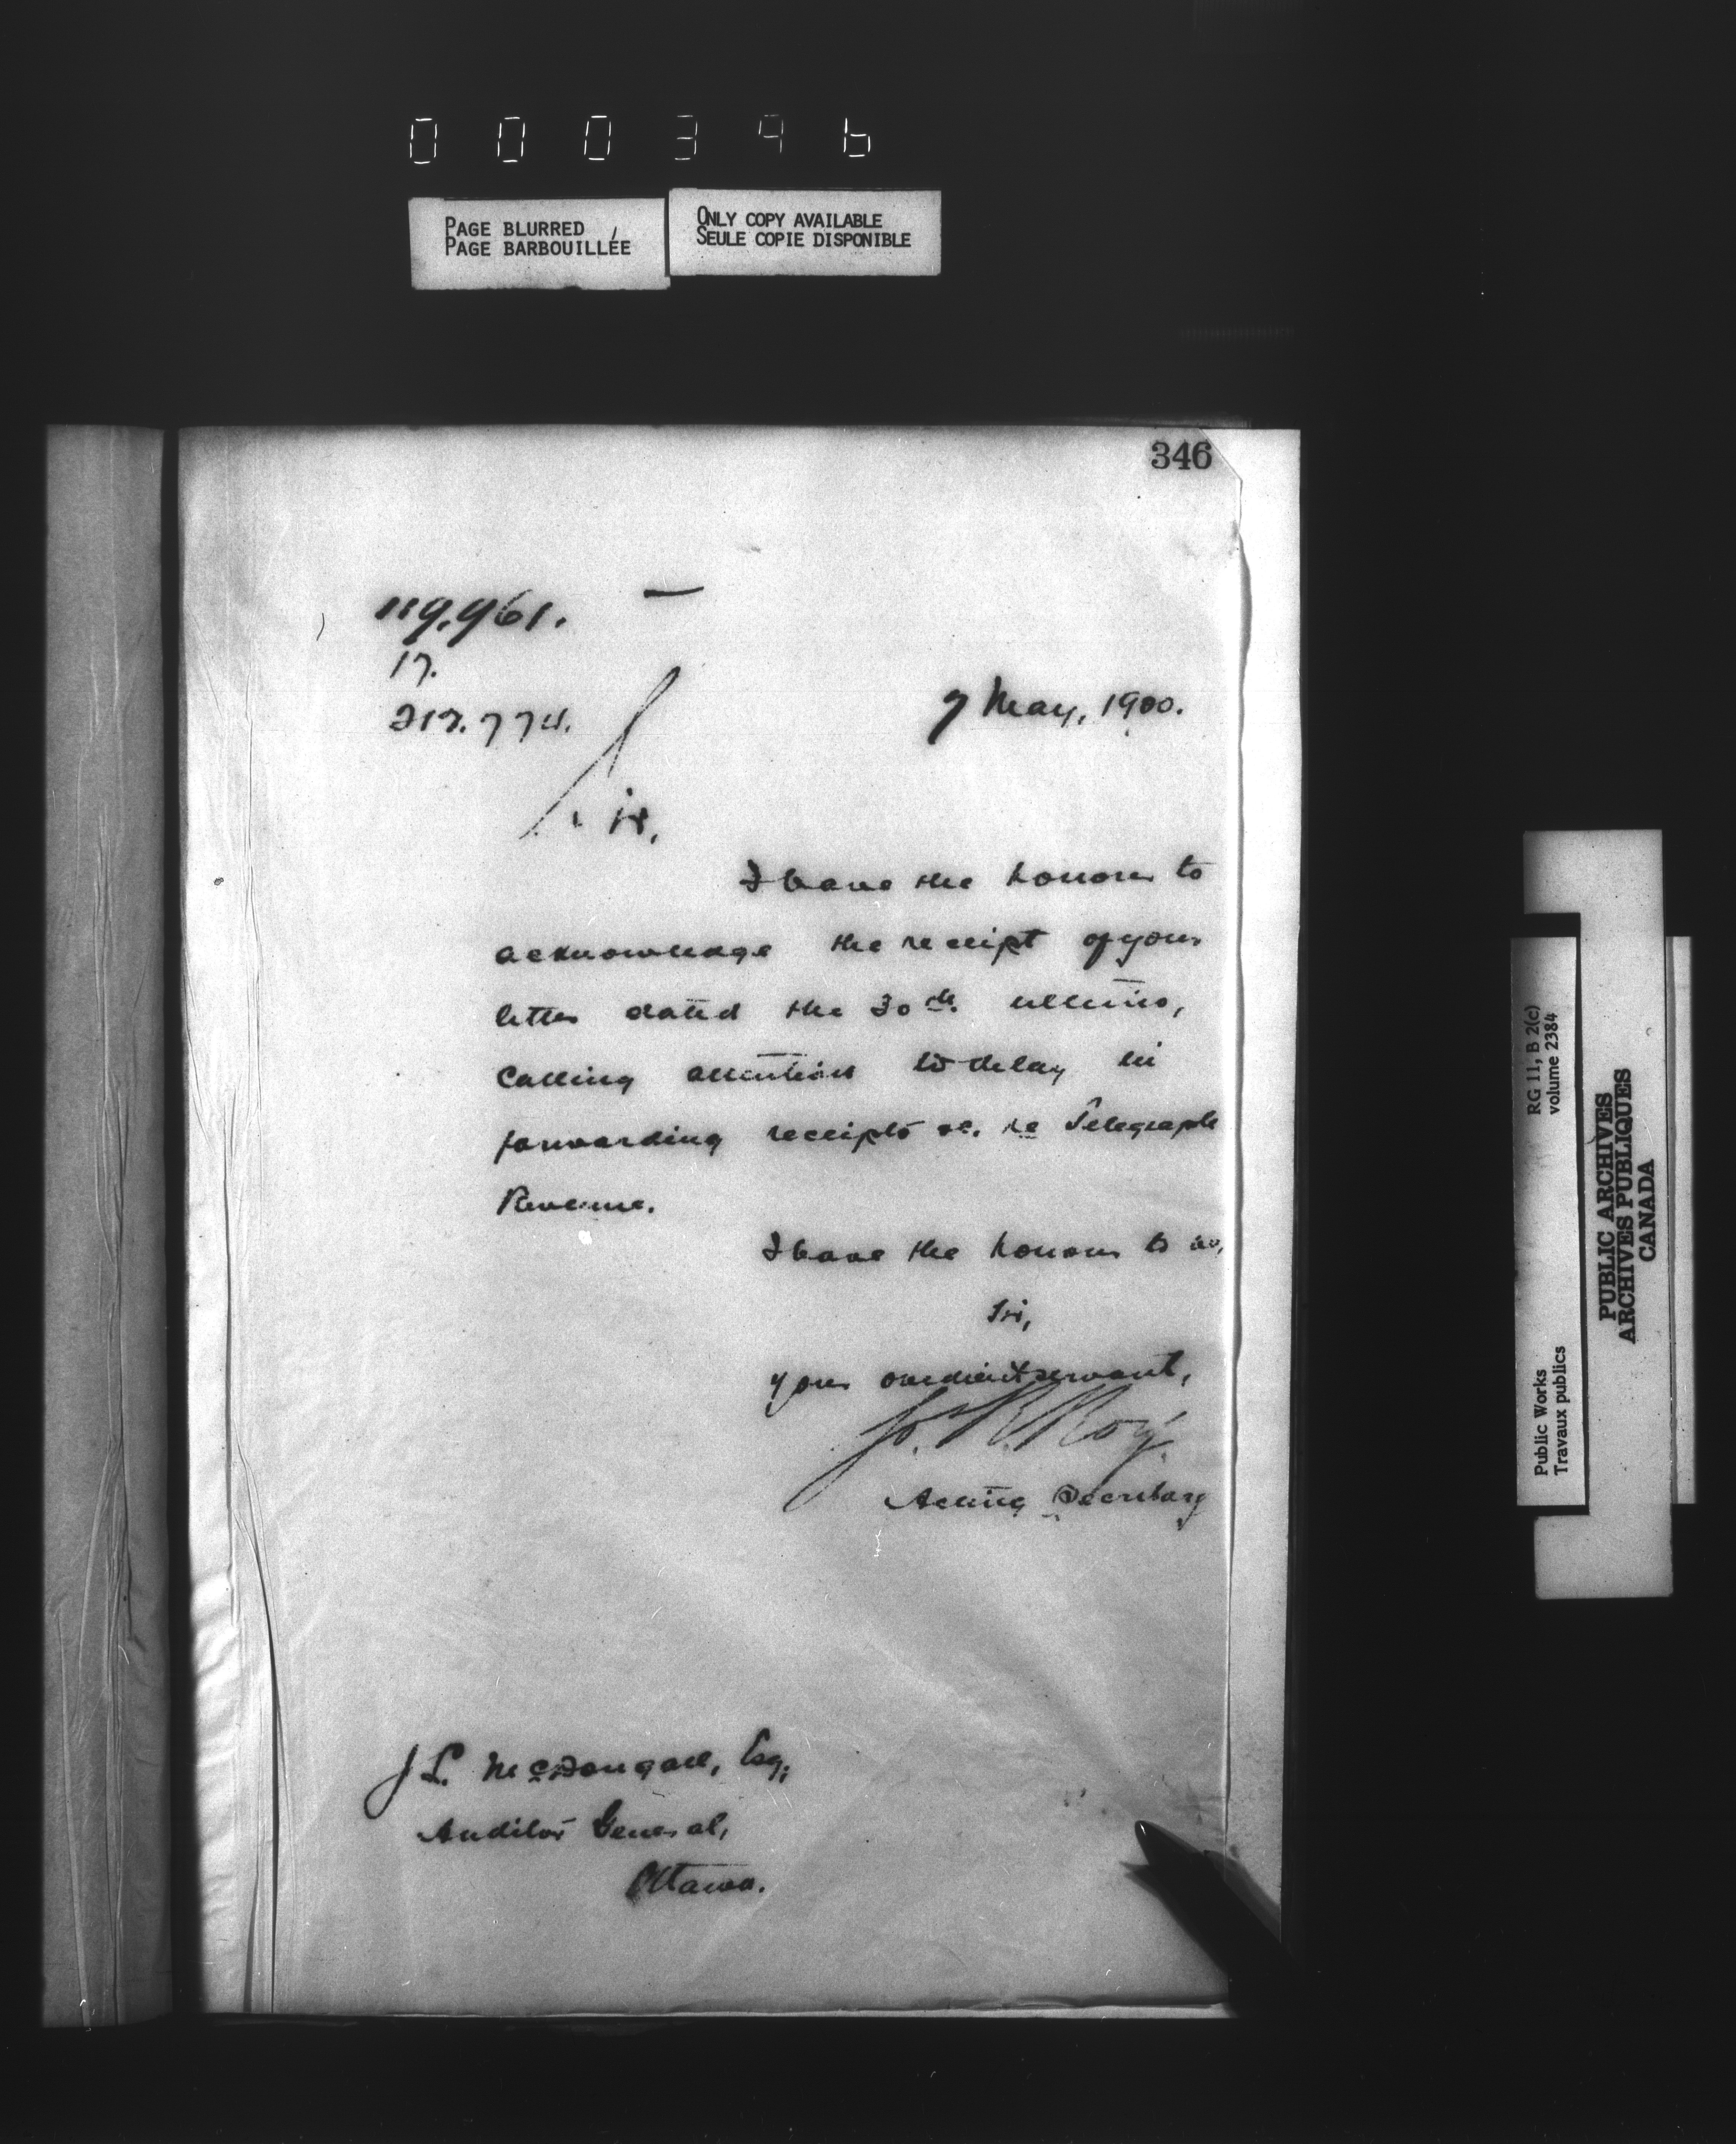 000346
PAGE BLURRED
PAGE BARBOUILLÉE
ONLY COPY AVAILABLE
SEULE COPIE DISPONIBLE
346
119.961.
17.
217.774.
7 May, 1900.
Sir,
I have the honour to
acknowledge the receipt of your
letter dated the 30th. ultimo,
calling attention to delay in
forwarding receipts &c. re Telegraph
Revenue.
I have the honour to be,
Sir,
your obedient servant,
Jos. R. Roy.
Acting Secretary
J L. McDougall, Esq;
Auditor General,
Ottawa.
RG 11, B 2(c)
volume 2384
Public Works
Travaux publics
PUBLIC ARCHIVES
ARCHIVES PUBLIQUES
CANADA